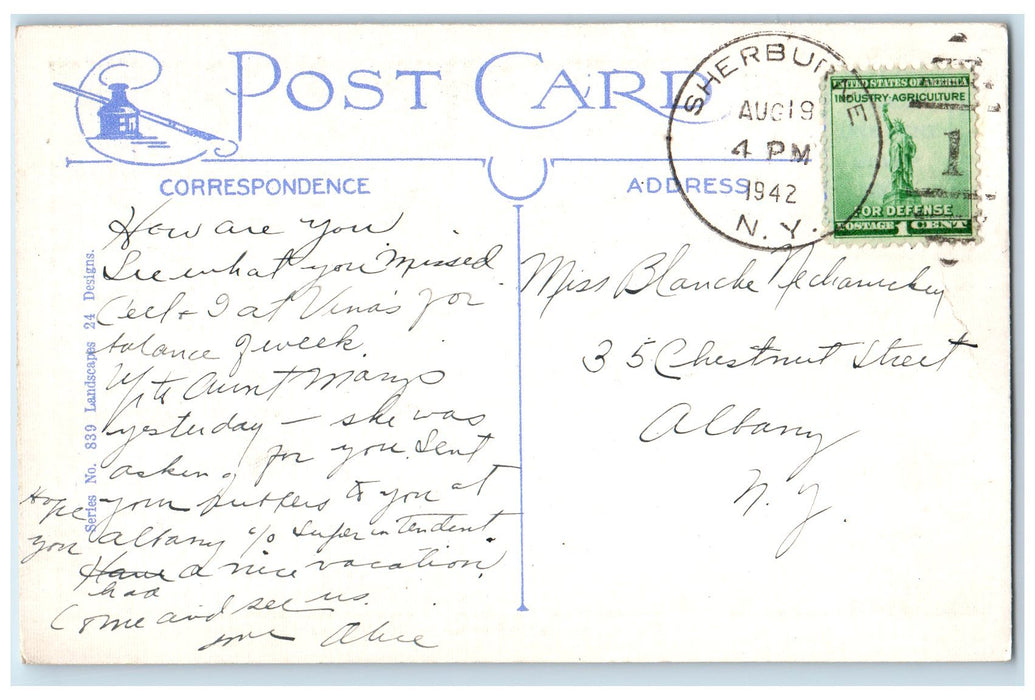 POST CARD
CORRESPONDENCE
ADDRESS
SHERBURNE
AUG 19
4 PM
1942
N.Y.
UNITED STATES OF AMERICA
INDUSTRY-AGRICULTURE
FOR DEFENSE
POSTAGE 1 CENT
1
Series No. 839 Landscapes 24 Designs.
How are you
See what you missed.
Ceil + I at Vina's for
balance of week.
Up to Aunt Marys
yesterday — she was
asking for you. Sent
your to you at
Albany c/o Superintendent.
Hope you Have had a nice vacation.
Come and see us.
Alice
Miss Blanche
35 Chestnut Street
Albany
N. Y.